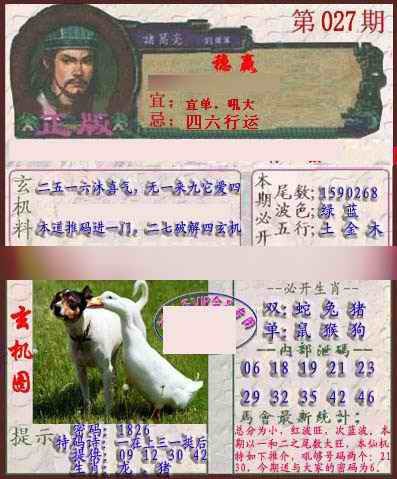 第027期
諸葛亮
穩贏
正版
宜：宜单．吼大
忌：四六行运
玄机料
二五一六沐喜气，无一来九它爱四
木送推码进一门，二七破解四玄机
本期必开
尾数:1590268
波色:绿 蓝
五行:土 金 木
玄机图
必开生肖
双: 蛇 兔 猪
单: 鼠 猴 狗
内部泄码
06 18 19 21 23
29 32 35 42 46
馬會最新統計:
总分为小，红波旺，次蓝波，本
期以一和二之尾数大旺，本仙机
特如下推介，吼够号码两个：21
30，今期送与大家的密码为6．
提示
密码: 1826
特码诗: 一在上三一挺后
提供: 09 12 30 42
生肖: 龙、猪